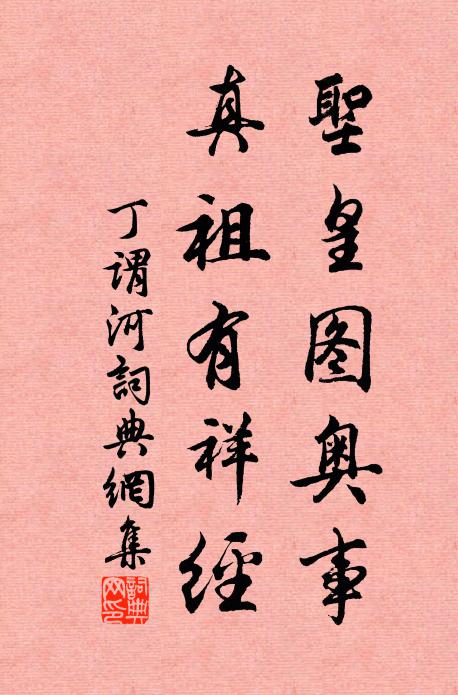 聖皇图奥事
真祖有祥經
丁謂河詞典網集
詞典网印